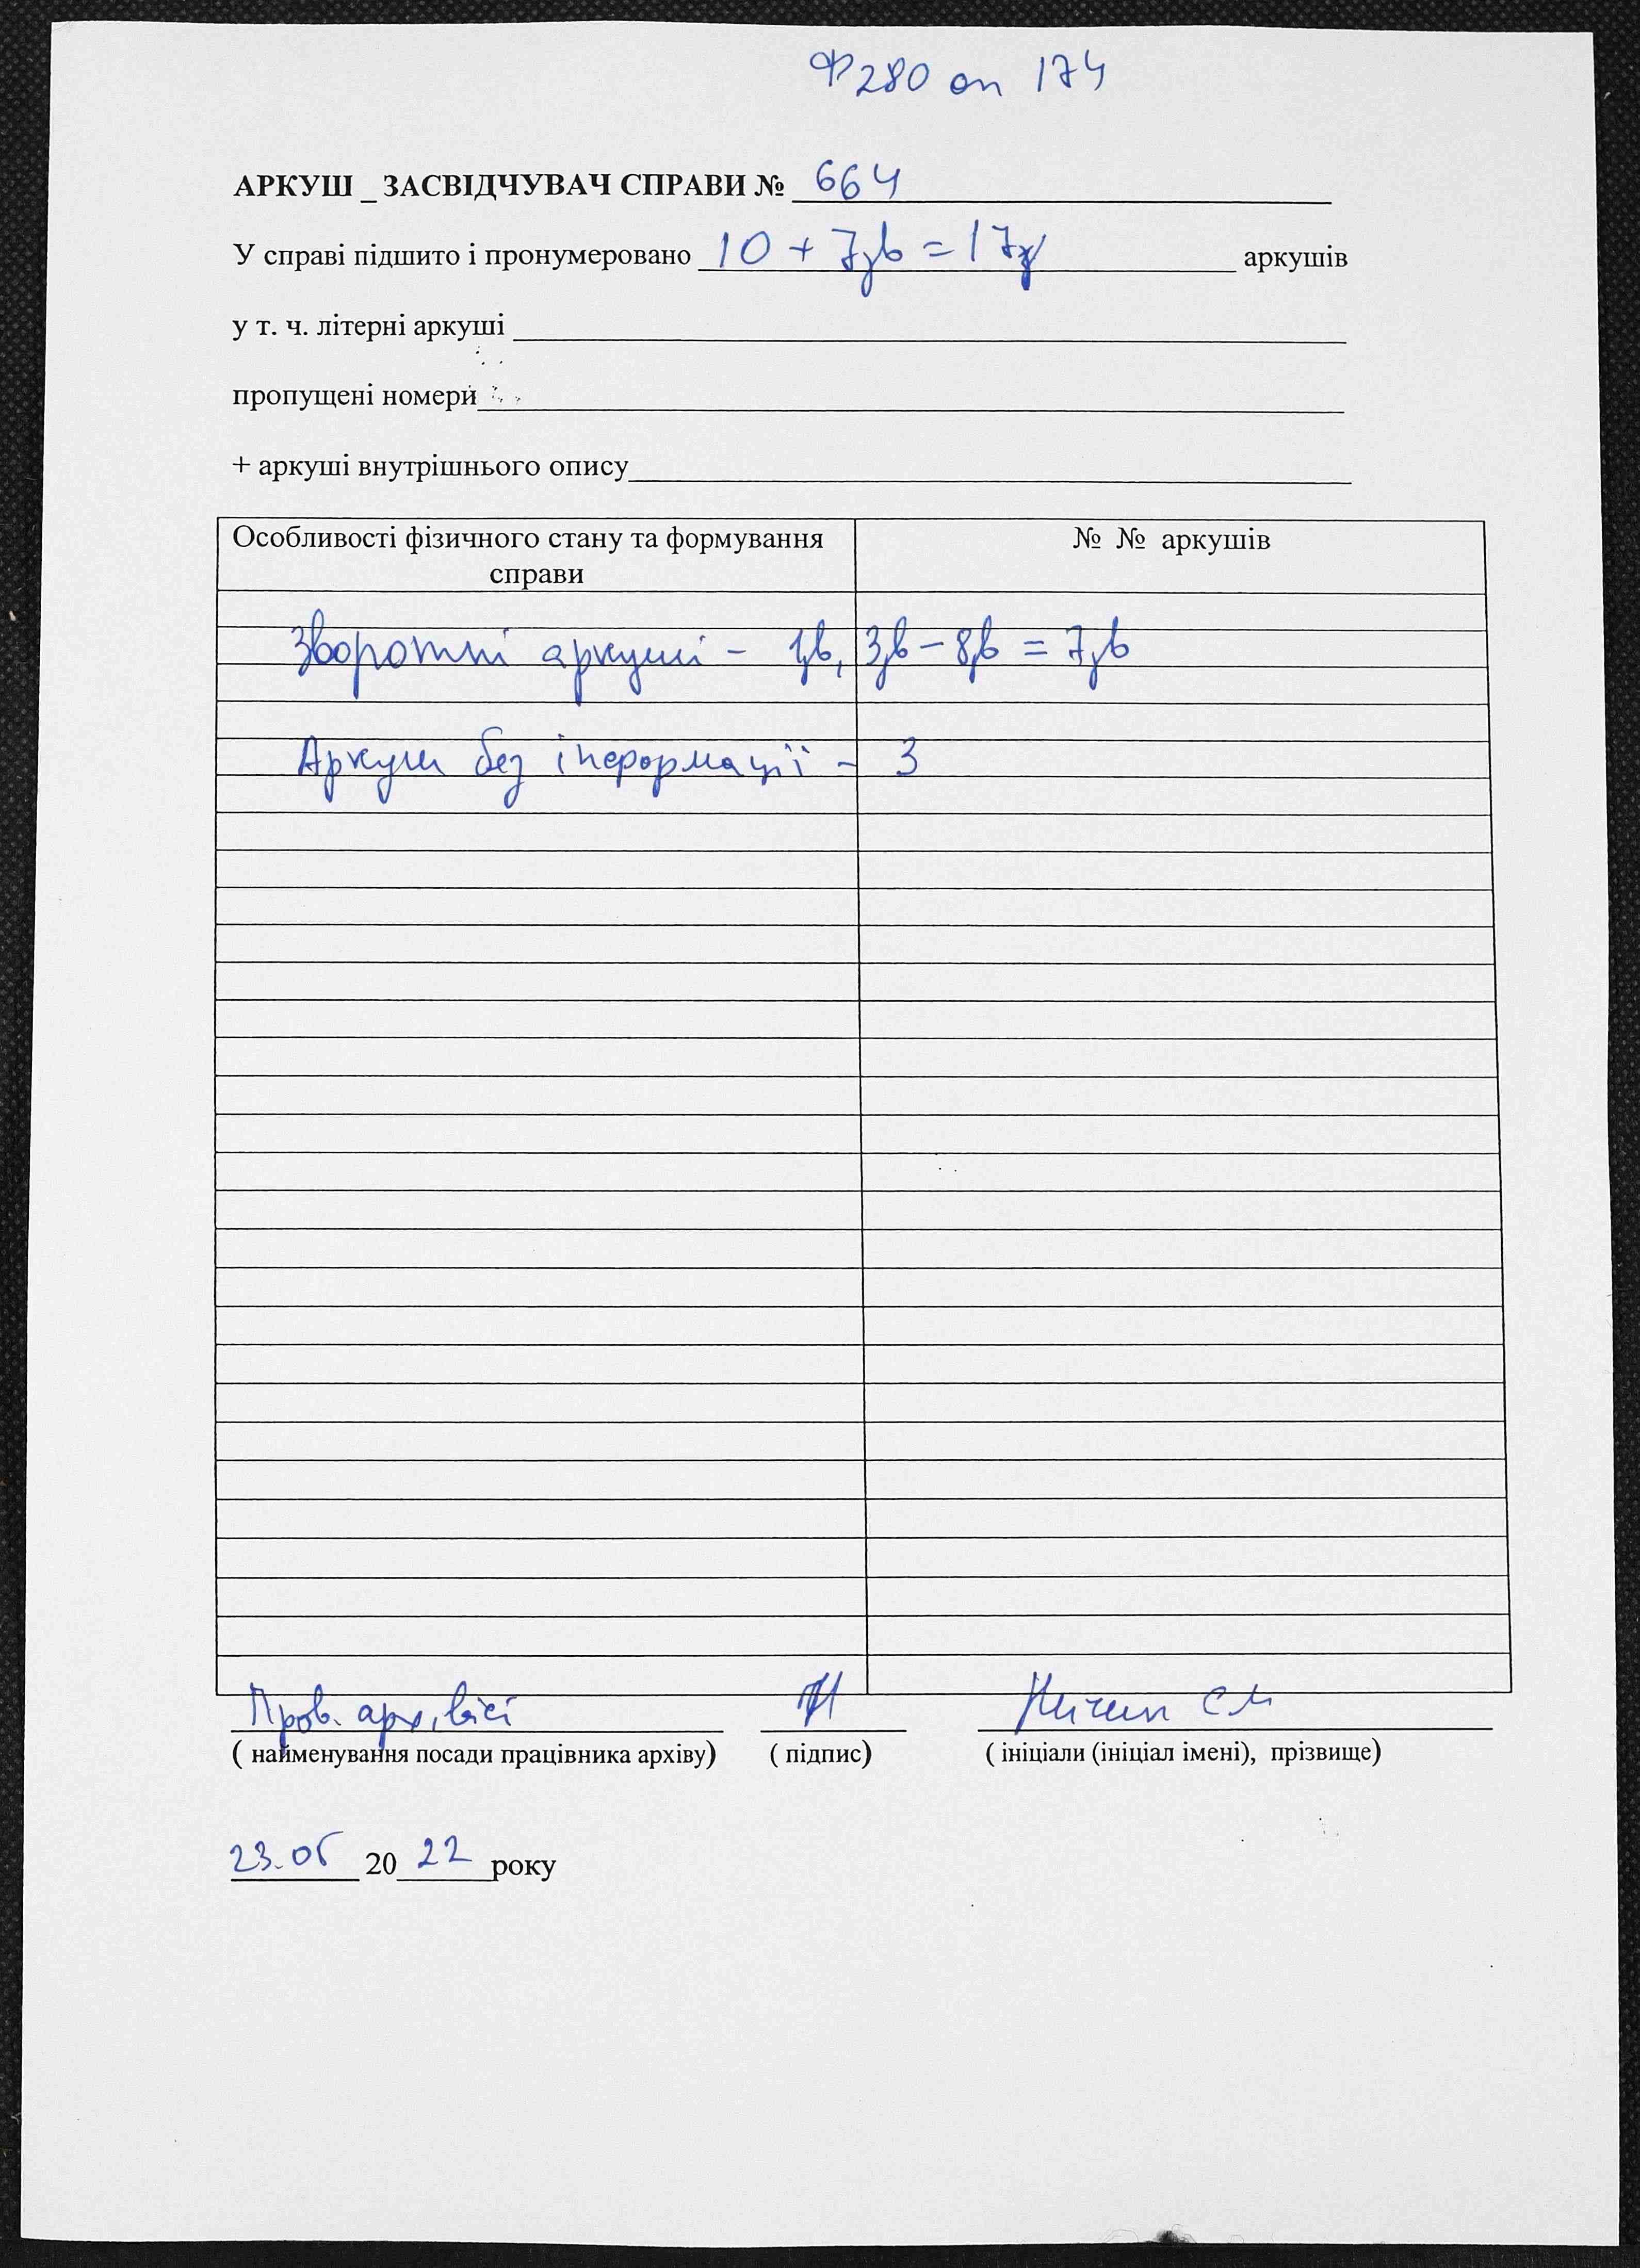 Ф280 оп 174
АРКУШ _ ЗАСВІДЧУВАЧ СПРАВИ № 664
У справі підшито і пронумеровано 10 + 7зв = 17 аркушів
у т. ч. літерні аркуші
пропущені номери
+ аркуші внутрішнього опису
Особливості фізичного стану та формування справи
№ № аркушів
Зворотні аркуші - 1зв, 3зв – 8зв = 7зв
Аркуш без інформації - 3
Пров. архівіст
( найменування посади працівника архіву) ( підпис) ( ініціали (ініціал імені), прізвище)
23.05 2022 року